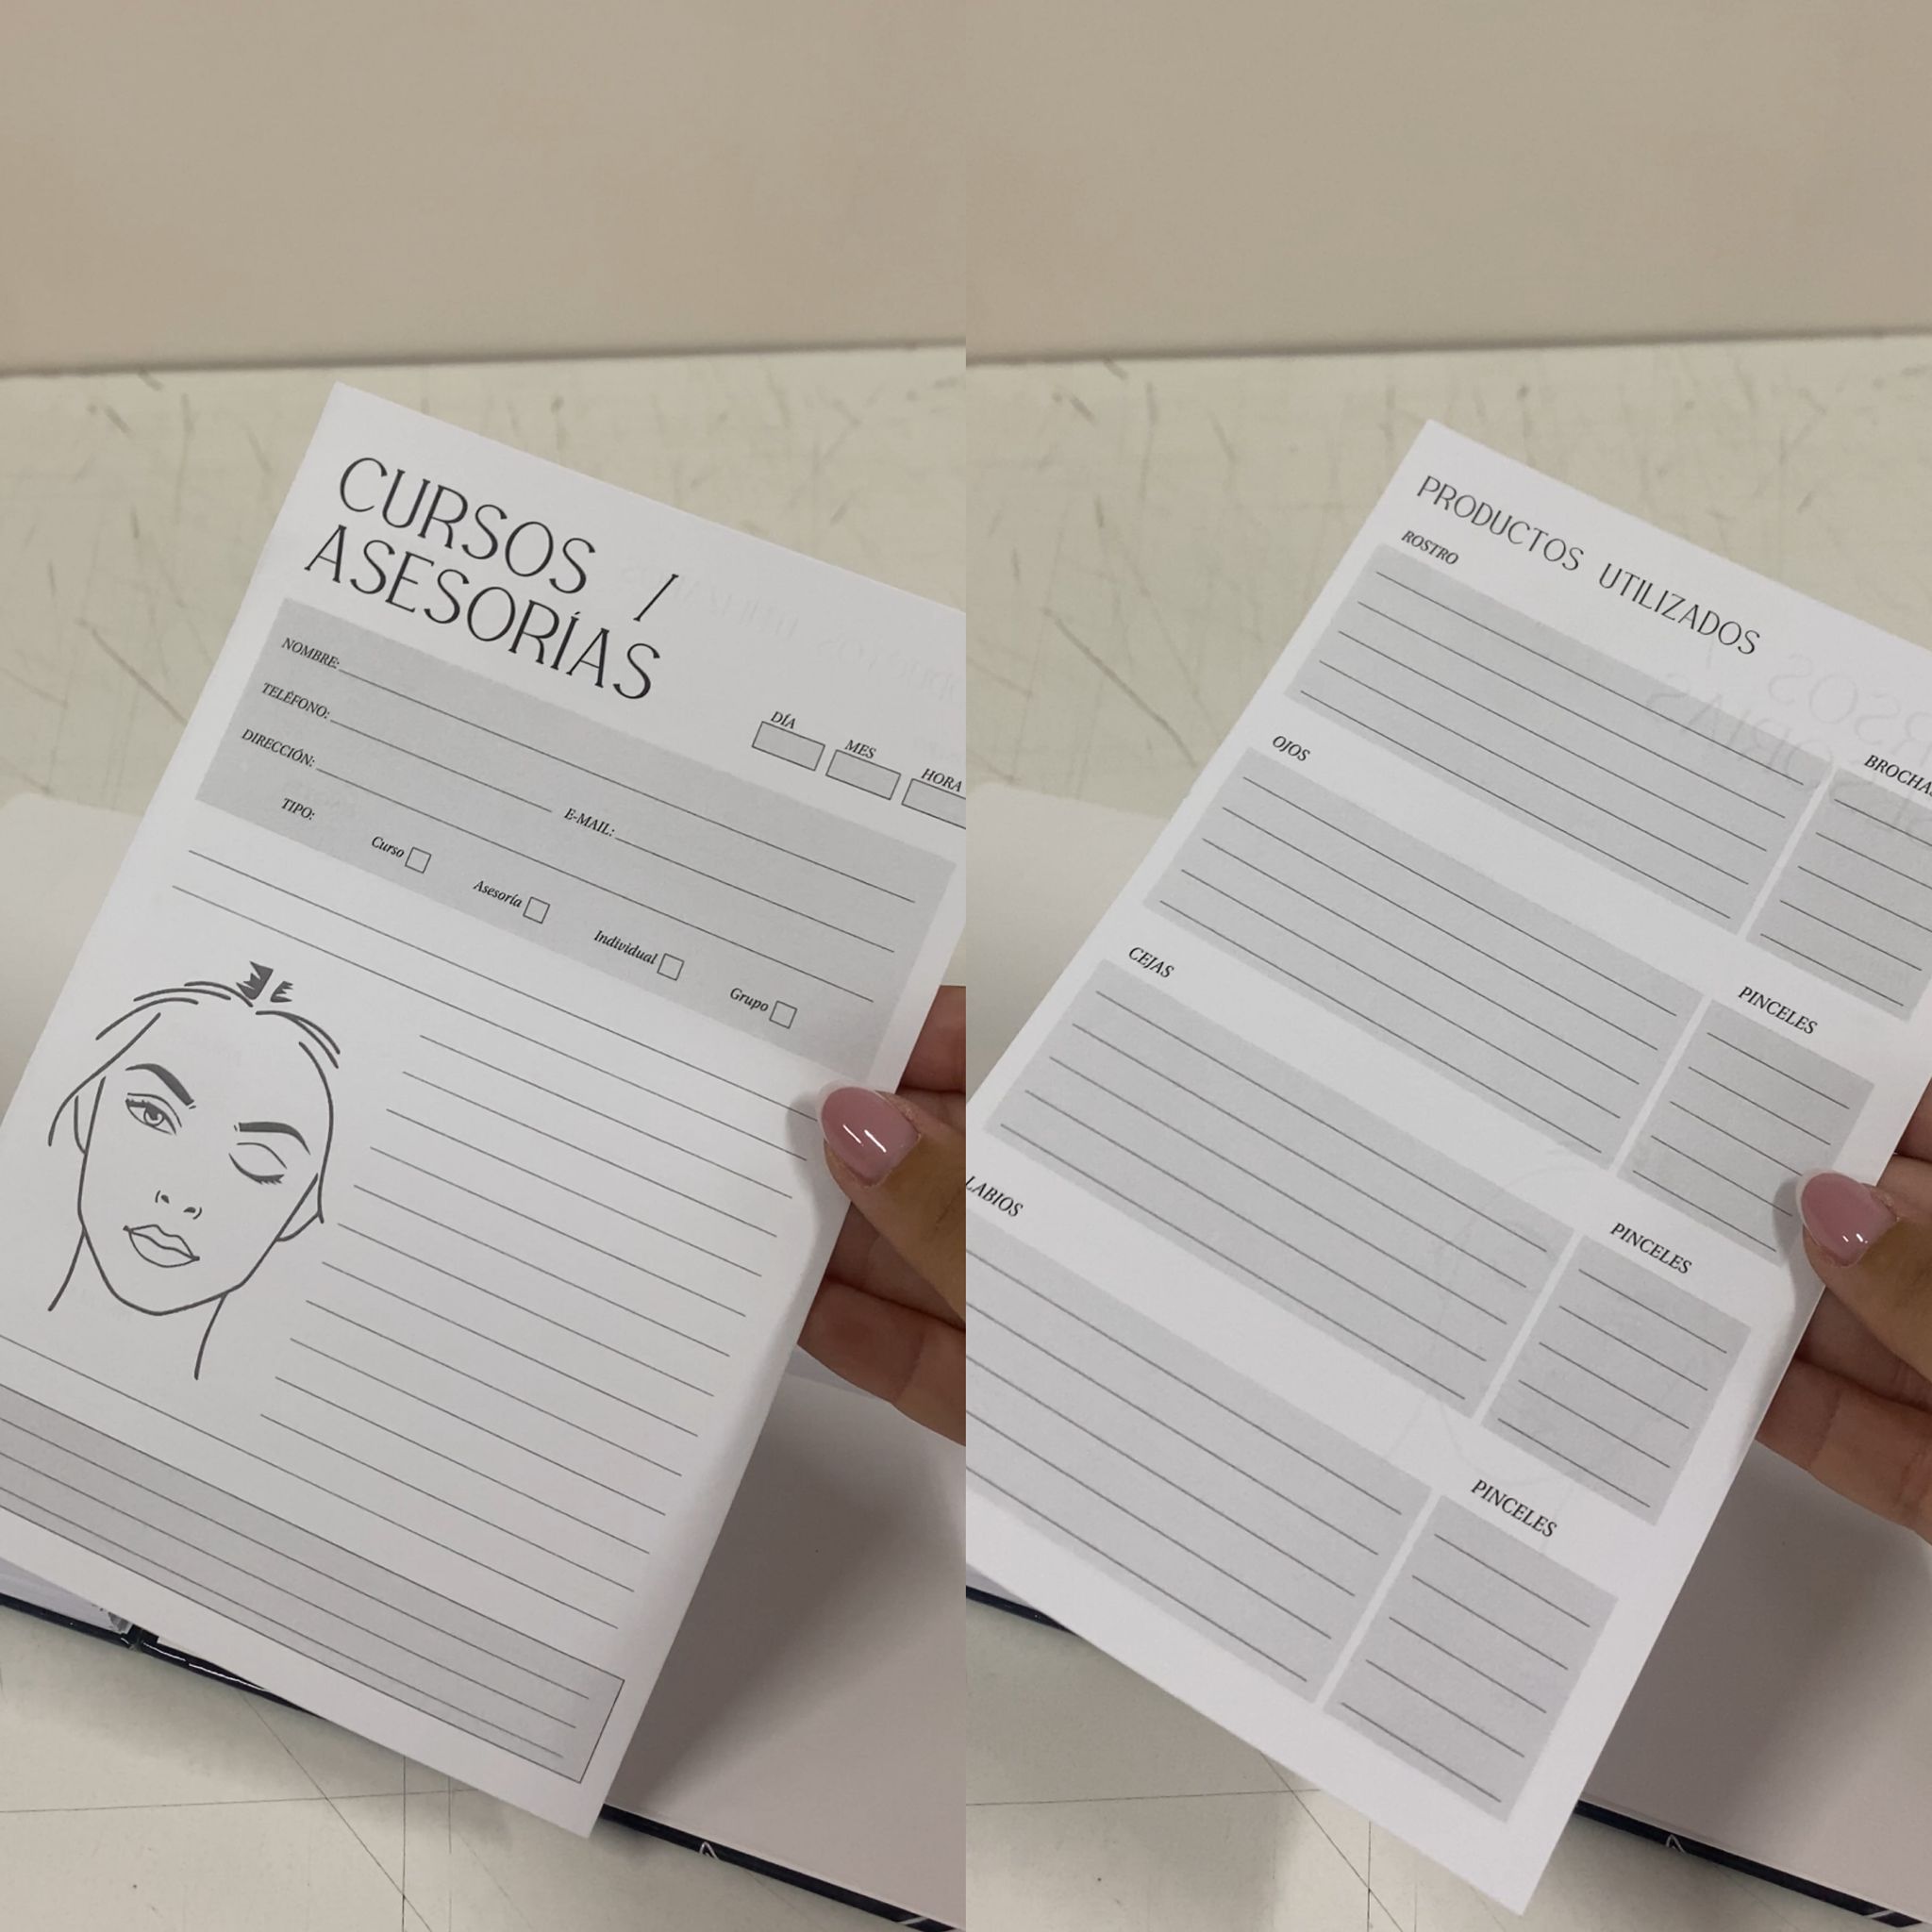 CURSOS /
ASESORÍAS
DÍA MES HORA
NOMBRE:
TELÉFONO:
DIRECCIÓN: E-MAIL:
TIPO: Curso Asesoría Individual Grupo
PRODUCTOS UTILIZADOS
ROSTRO
OJOS
PINCELES
CEJAS
PINCELES
LABIOS
PINCELES